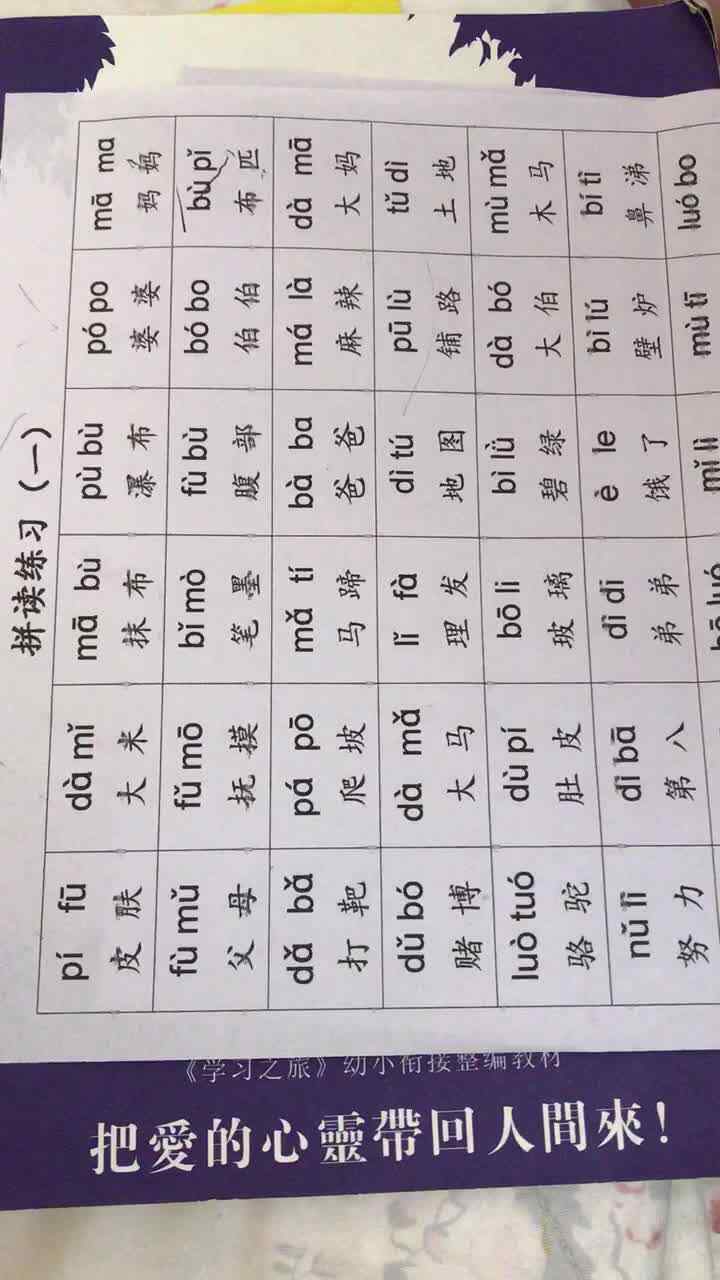 拼读练习（一）
pí fū dà mǐ mā bù pù bù pó po mā ma
皮肤 大米 抹布 瀑布 婆婆 妈妈
fù mǔ fǔ mō bǐ mò fù bù bó bo bù pǐ
父母 抚摸 笔墨 腹部 伯伯 布匹
dǎ bǎ pá pō mǎ tí bà ba má là dà mā
打靶 爬坡 马蹄 爸爸 麻辣 大妈
dǔ bó dà mǎ lǐ fà dì tú pū lù tǔ dì
赌博 大马 理发 地图 铺路 土地
luò tuó dù pí bō li bì lǜ dà bó mù mǎ
骆驼 肚皮 玻璃 碧绿 大伯 木马
nǔ lì dì bā dì di è le bì lú bí tì
努力 第八 弟弟 饿了 壁炉 鼻涕
mǐ lì mù tī luó bo
《学习之旅》幼小衔接整编教材
把愛的心靈帶回人間來！